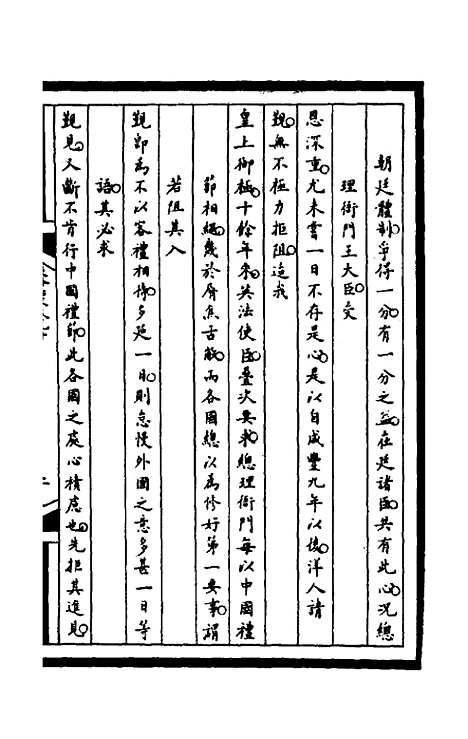 朝廷體制爭得一分有一分之益在廷諸臣共有此心況總
理衙門王大臣受
恩深重尤未嘗一日不存是心是以自咸豐九年以後洋人請
覲無不極力拒阻迨我
皇上御極十餘年來英法使臣疊次要求總理衙門每以中國禮
節相繩幾於脣焦舌敝而各國總以為修好第一要事謂
若阻其入
覲即為不以客禮相待多延一日則怠慢外國之意多甚一日等
語其必求
覲見又斷不肯行中國禮節此各國之處心積慮也先拒其進見